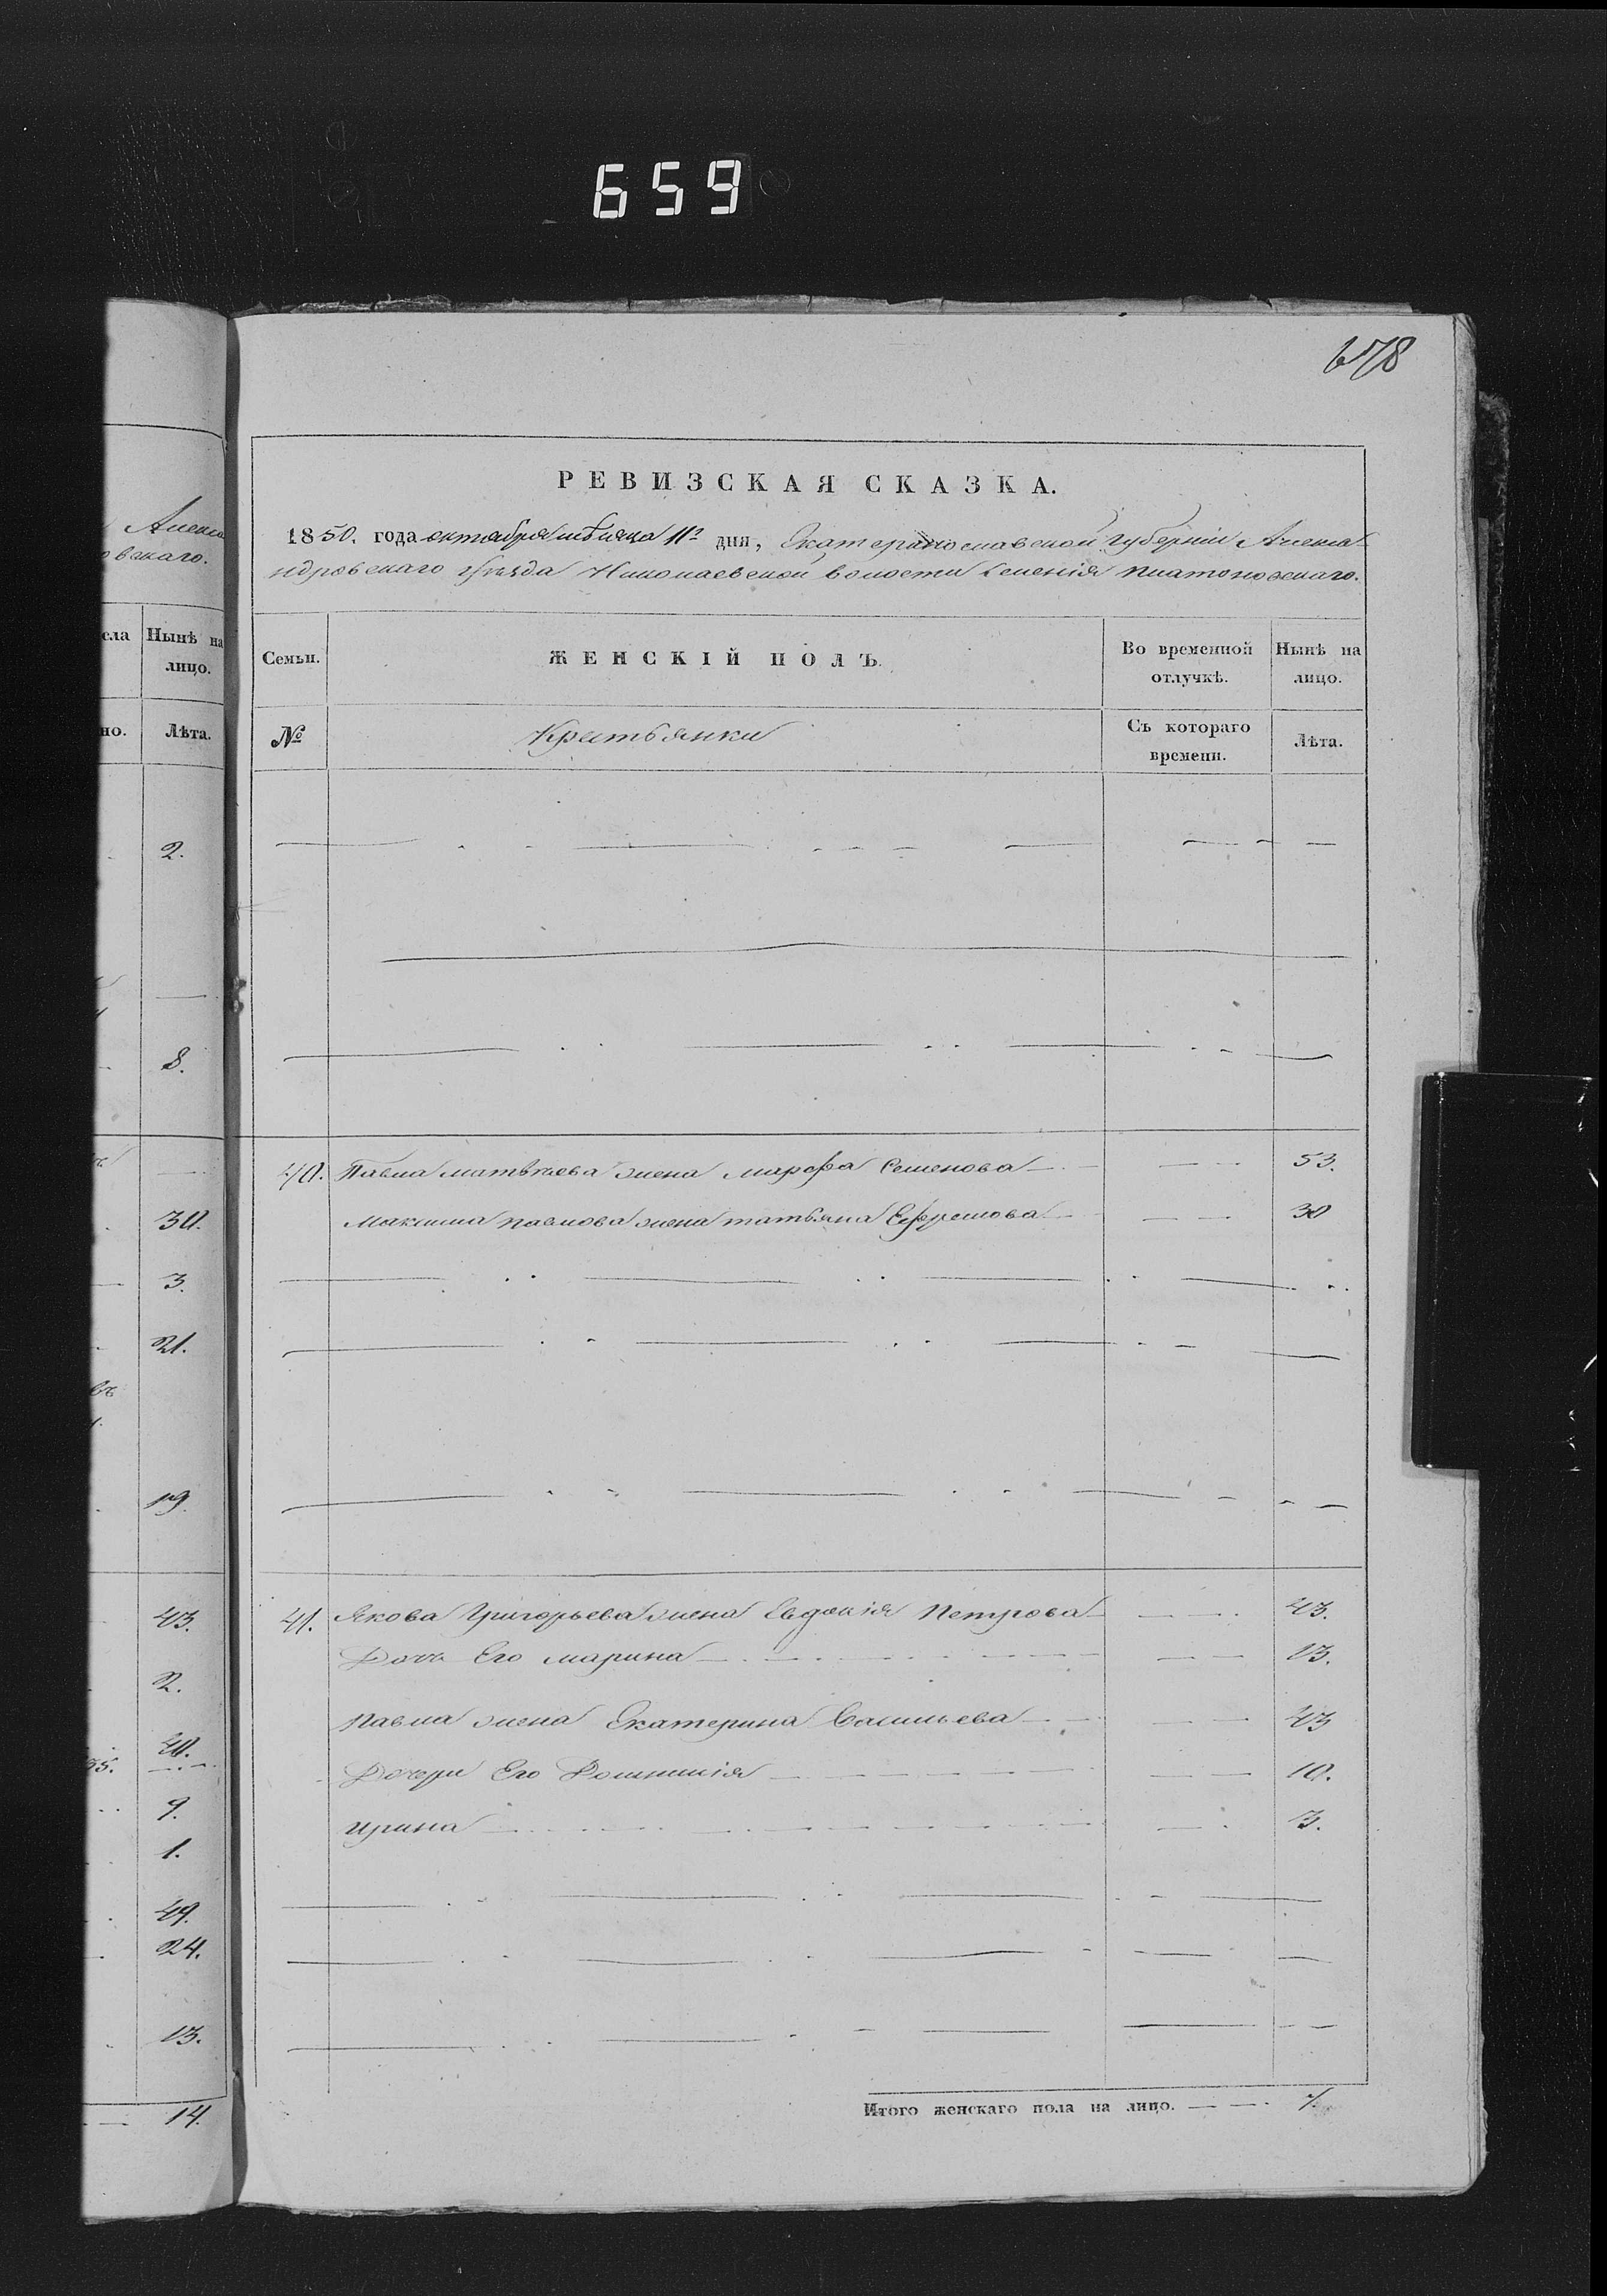 659
678
Алекса
овскаго.
сла Нынѣ на лицо.
но. Лѣта.
2.
8.
30.
3.
21.
въ
19.
43.
2.
40.
35.
9.
1.
49.
24.
13.
14.
РЕВИЗСКАЯ СКАЗКА.
1850. года октября мѣсяца 11го дня, Екатеринославской губерніи Алекса-
ндровскаго уѣзда Николаевской волости селенія Платоновскаго.
Семьи. ЖЕНСКІЙ ПОЛЪ. Во временной отлучкѣ. Нынѣ на лицо.
№ Крестьянки Съ котораго времени. Лѣта.
40. Павла Матвѣева жена Марфа Семенова 53.
Максима Павлова жена Татьяна Ефремова 30
41. Якова Григорьева жена Евдокія Петрова 43.
Дочь Его Марина 13.
Павла жена Екатерина Васильева 43
Дочери Его Домникія 10.
Ирина 3.
Итого женскаго пола на лицо. 7.